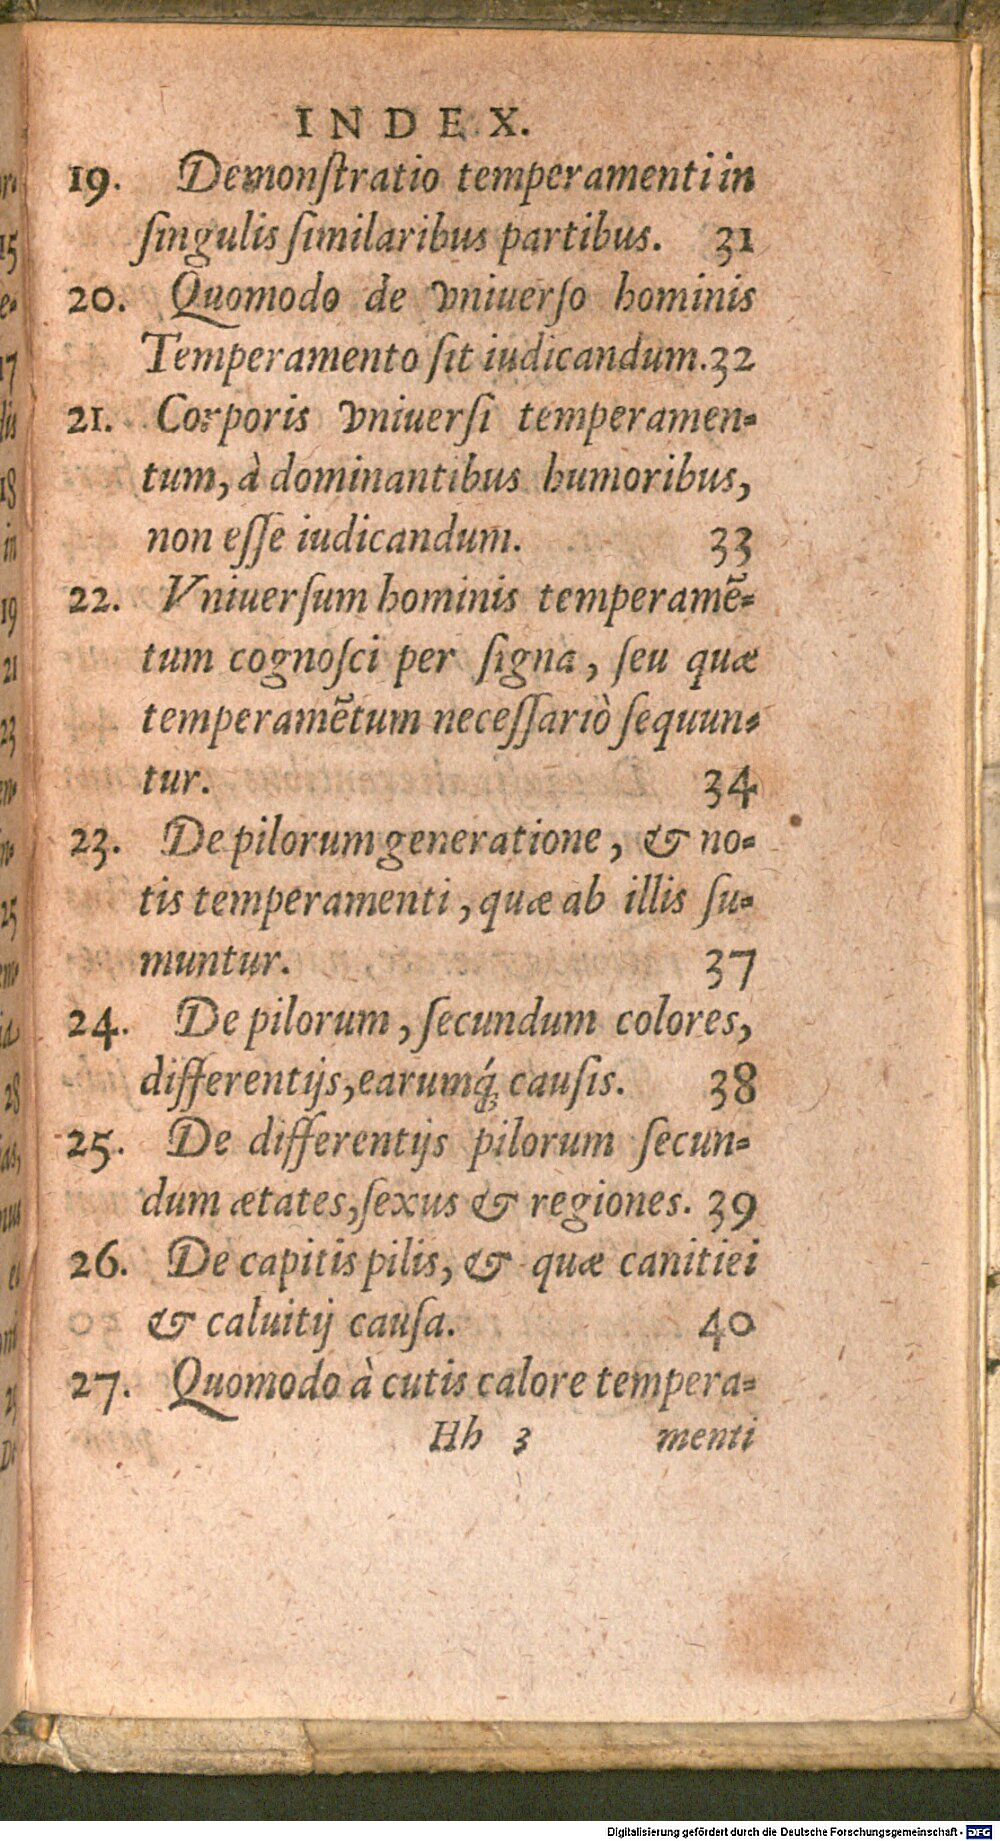 INDEX.
19. Demonſtratio temperamenti in
ſingulis ſimilaribus partibus. 31
20. Quomodo de vniuerſo hominis
Temperamento ſit iudicandum. 32
21. Corporis vniuerſi temperamen-
tum, à dominantibus humoribus,
non eſſe iudicandum. 33
22. Vniuerſum hominis temperamẽ-
tum cognoſci per ſigna, ſeu quæ
temperamẽtum neceſſariò ſequun-
tur. 34
23. De pilorum generatione, & no-
tis temperamenti, quæ ab illis ſu-
muntur. 37
24. De pilorum, ſecundum colores,
differentijs, earumq́; cauſis. 38
25. De differentijs pilorum ſecun-
dum ætates, ſexus & regiones. 39
26. De capitis pilis, & quæ canitiei
& caluitij cauſa. 40
27. Quomodo à cutis calore tempera-
Hh 3 menti
Digitalisierung gefördert durch die Deutsche Forschungsgemeinschaft - DFG